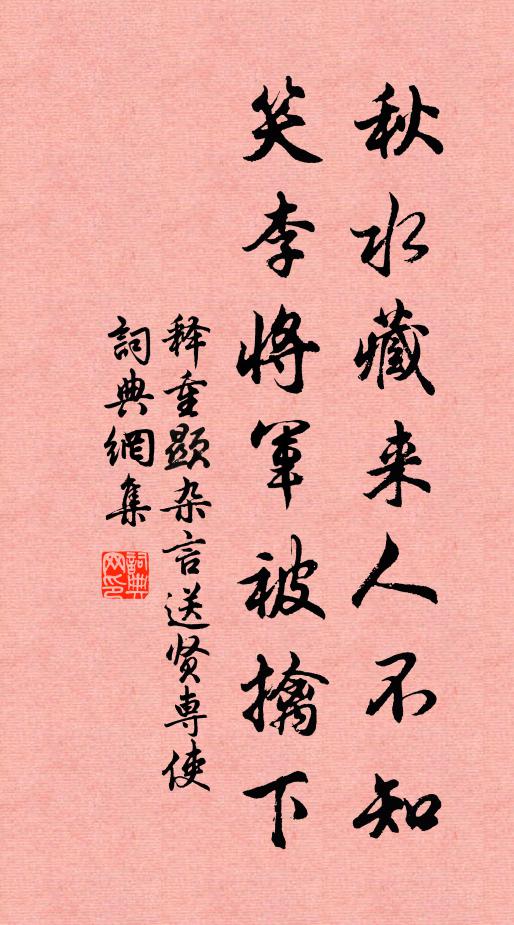 秋水藏来人不知
笑李將軍被擒下
释重顯杂言送贤専使
詞典網集
詞典网印